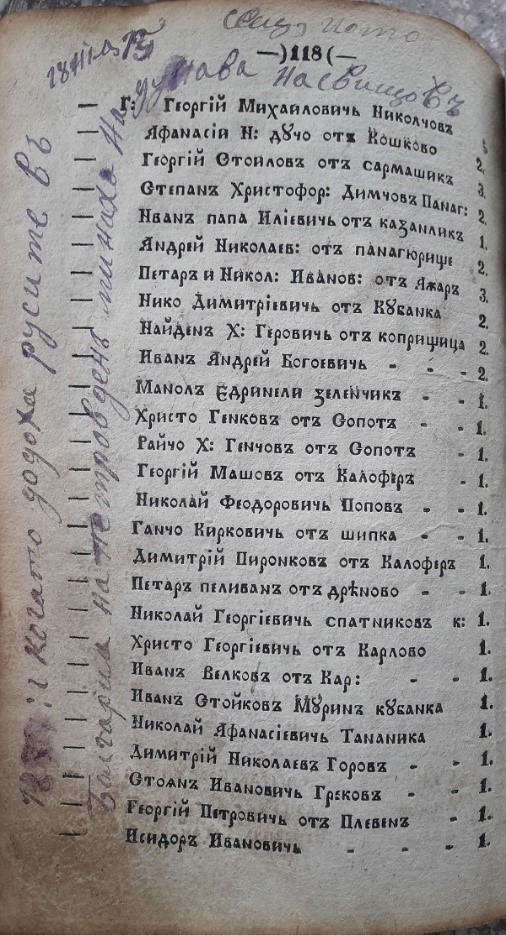 —)118(—
Г: Георгій Михайловичь Николчовъ
Афанасій Н: дꙋчо отъ Кошково 2.
Георгій Стойловъ отъ сармашикъ 3.
Степанъ Христофор: Димчовъ Панаг: 2.
Иванъ папа Иліевичь отъ казанликъ 1.
Андрей Николаев: отъ панагюрище 2.
Петаръ и Никол: Иванов: отъ Ажаръ 3.
Нико Димитріевичь отъ Кꙋбанка 2.
Найденъ Х: Геровичь от коприщица 2.
Иванъ Андрей Богоевичь - - - 2.
Манолъ Єдринели зеленчикъ - - 1.
Христо Генковъ отъ Сопотъ - - 1.
Райчо Х: Генчовъ отъ Сопотъ - 1.
Георгій Машовъ отъ Калоферъ - 1.
Николай Феодоровичь Поповъ - - 1.
Ганчо Кирковичь отъ шипка - - 1.
Димитрій Пиронковъ отъ Калоферъ 1.
Петаръ пеливанъ отъ дрѣново - - 1.
Николай Георгіевичь спатниковъ к: 1.
Христо Георгіевичь отъ Карлово 1.
Иванъ Велковъ отъ Кар: - - 1.
Иванъ Стойковъ Мꙋринъ кꙋбанка 1.
Николай Афанасіевичь Тананика 1.
Димитрій Николаевъ Горовъ - - 1.
Стоянъ Ивановичь Грековъ - - 1.
Георгій Петровичь от Плевенъ - 1.
Исидоръ Ивановичь - - - 1.
когато додоха русите въ
Болгариа на петровдень минаха на дунава на свищовъ